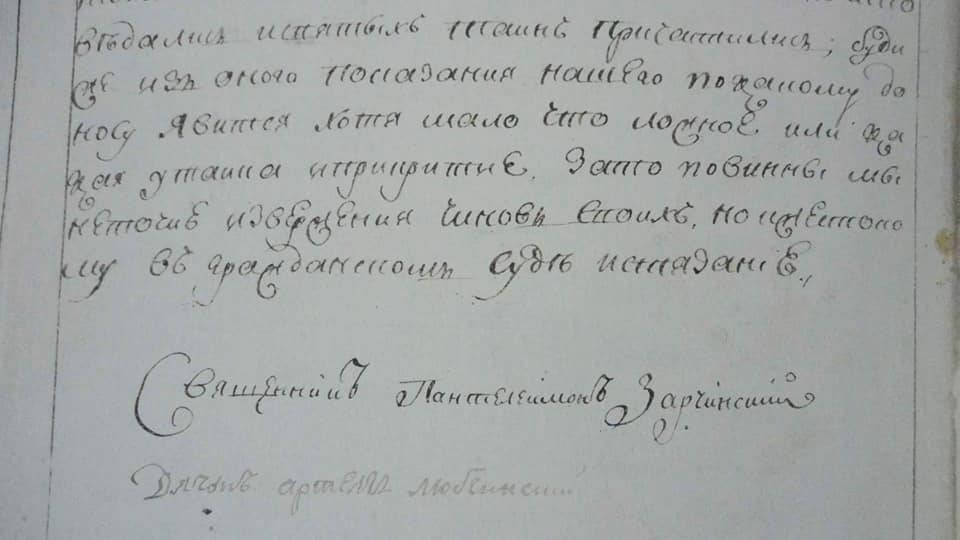 вѣдалис исвятыхъ таинъ причастились; буди
же изъ оного показания нашего покакому до
носу явится хотя мало что ложное или ка
кая утайка иприкрытие. Зато повинны мы
неточие извержения чиновъ своихъ, но ижестоко
му въ гражданскомъ судѣ истязание.
Священникъ Пантелеимонъ Зарчинский
Дячокъ артемы любчинский